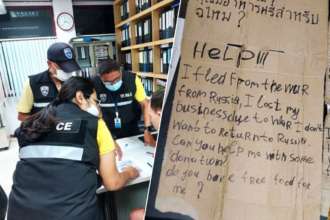 ไหม ?
HeLP!!!
I fled from the WUR
from Rusia, I lost my
business due to WUR I don't
Want to Return to Rusia
Can you HELP me with some
donation?
do you have free food for
me ?
CE